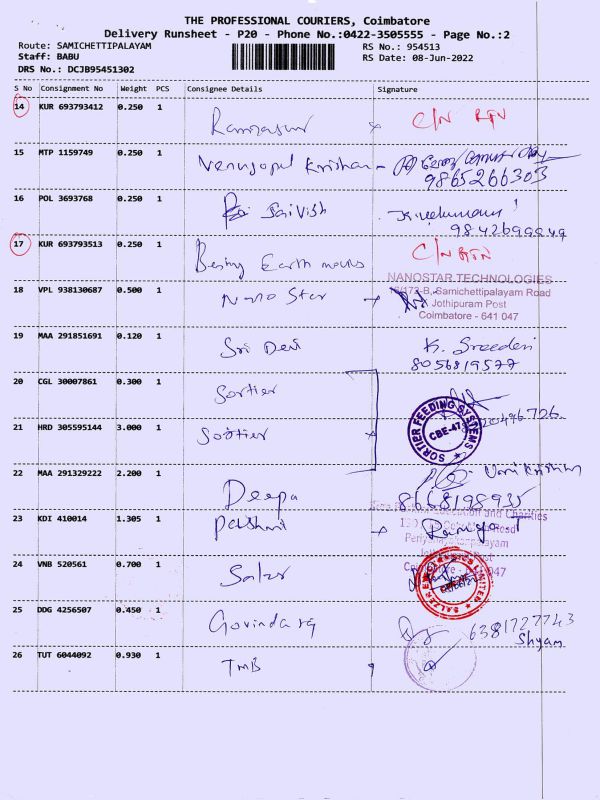 THE PROFESSIONAL COURIERS, Coimbatore
Delivery Runsheet - P20 - Phone No.:0422-3505555 - Page No.:2
Route: SAMICHETTIPALAYAM RS No.: 954513
Staff: BABU RS Date: 08-Jun-2022
DRS No.: DCJB95451302
S No Consignment No Weight PCS Consignee Details Signature
14 KUR 693793412 0.250 1 C/N RTN
15 MTP 1159749 0.250 1 Venugopal Krishan
9865266303
16 POL 3693768 0.250 1 Sri Sairish
17 KUR 693793513 0.250 1 C/N RTN
Being Earth
NANOSTAR TECHNOLOGIES
18 VPL 938130687 0.500 1 Nano Star Samichettipalayam Road
Jothipuram Post
Coimbatore - 641 047
19 MAA 291851691 0.120 1 Sri Devi K. Sreedevi
8056819577
20 CGL 30007861 0.300 1 Sortier
21 HRD 305595144 3.000 1 Sortier SORTIER FEEDING SYSTEMS CBE-47
22 MAA 291329222 2.200 1 Deepa
8668198935
23 KDI 410014 1.305 1 Ramya.T
24 VNB 520561 0.700 1 Salzer
25 DDG 4256507 0.450 1 Govindaraj 6381727743
Shyam
26 TUT 6044092 0.930 1 TMB